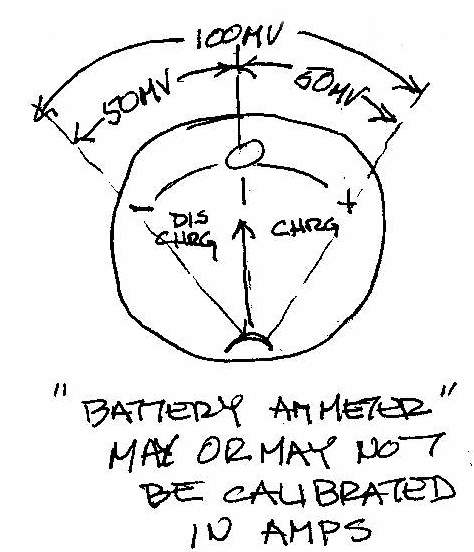 100MV
50MV 50MV
0
- +
DIS CHRG
CHRG
"BATTERY AMMETER"
MAY OR MAY NOT
BE CALIBRATED
IN AMPS